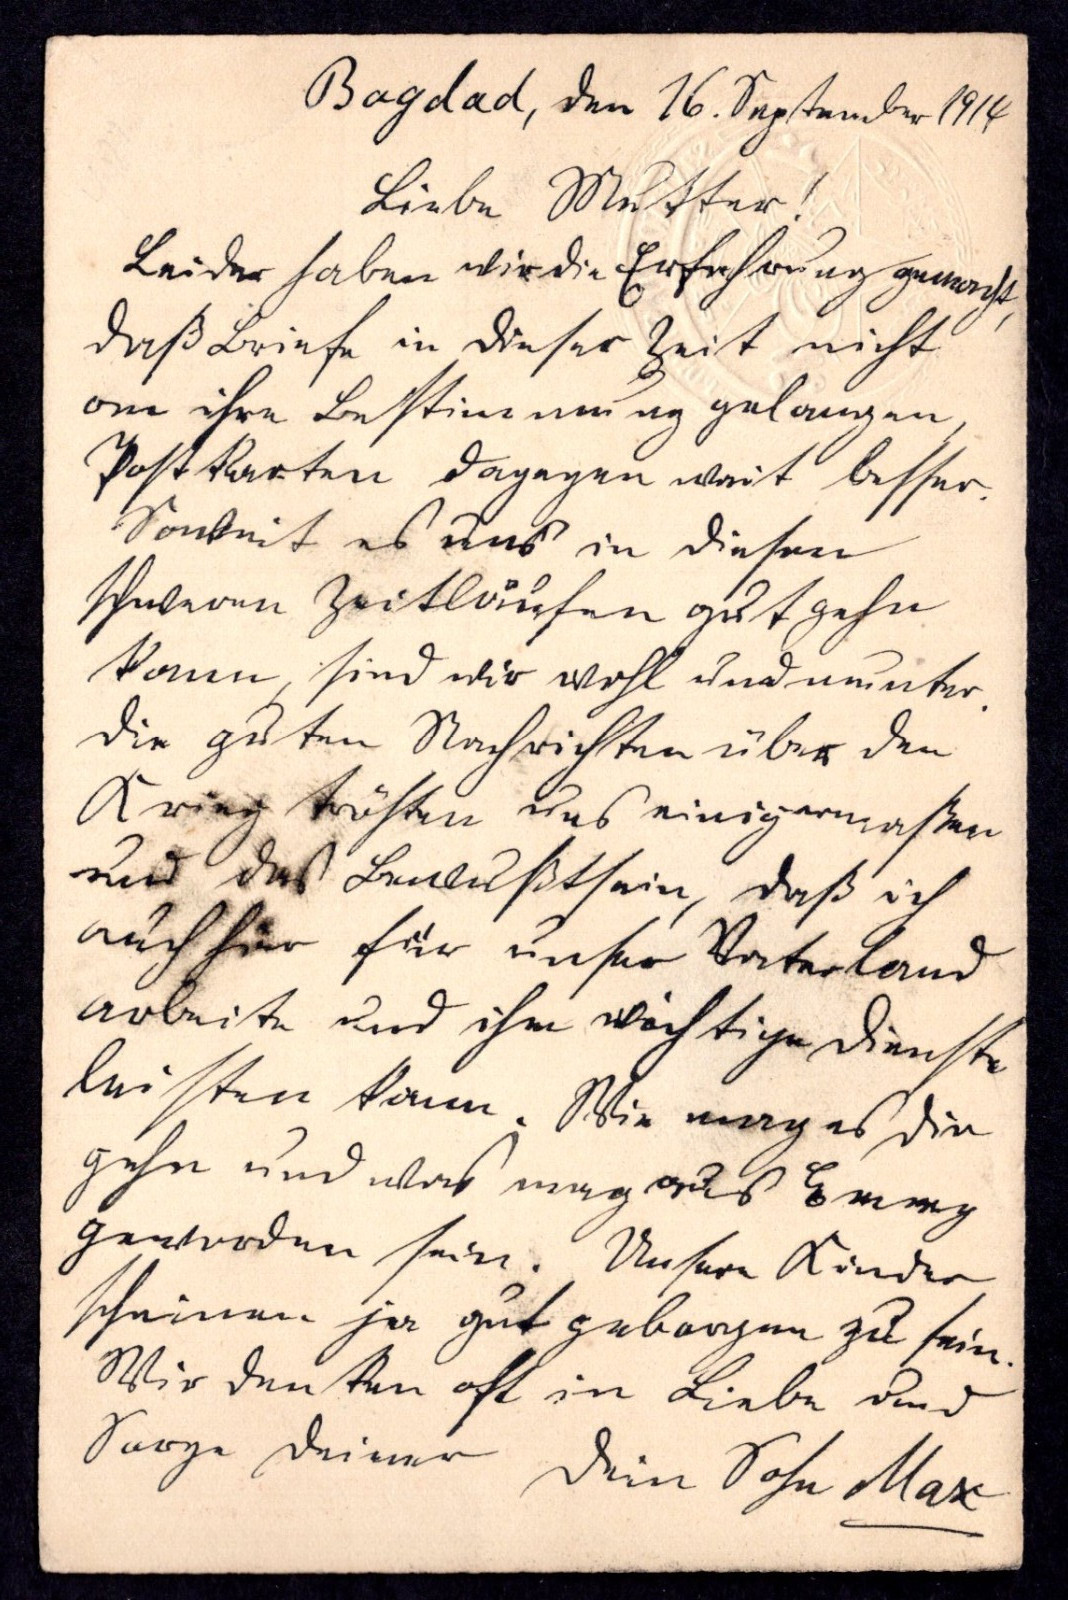 Bagdad, den 16. September 1914
Liebe Mutter!
Leider haben wir die Erfahrung gemacht,
daß Briefe in dieser Zeit nicht
an ihre Bestimmung gelangen,
Postkarten dagegen weit besser.
Soweit es uns in diesen
schweren Zeitläufen gut gehn
kann, sind wir wohl und munter.
Die guten Nachrichten über den
Krieg trösten uns einigermaßen
und das Bewußtsein, daß ich
auch hier für unser Vaterland
arbeite und ihm wichtige Dienste
leisten kann. Wie mag es dir
gehn und was mag aus Emmy
geworden sein. Unsere Kinder
scheinen ja gut geborgen zu sein.
Wir denken oft in Liebe und
Sorge deiner Dein Sohn Max